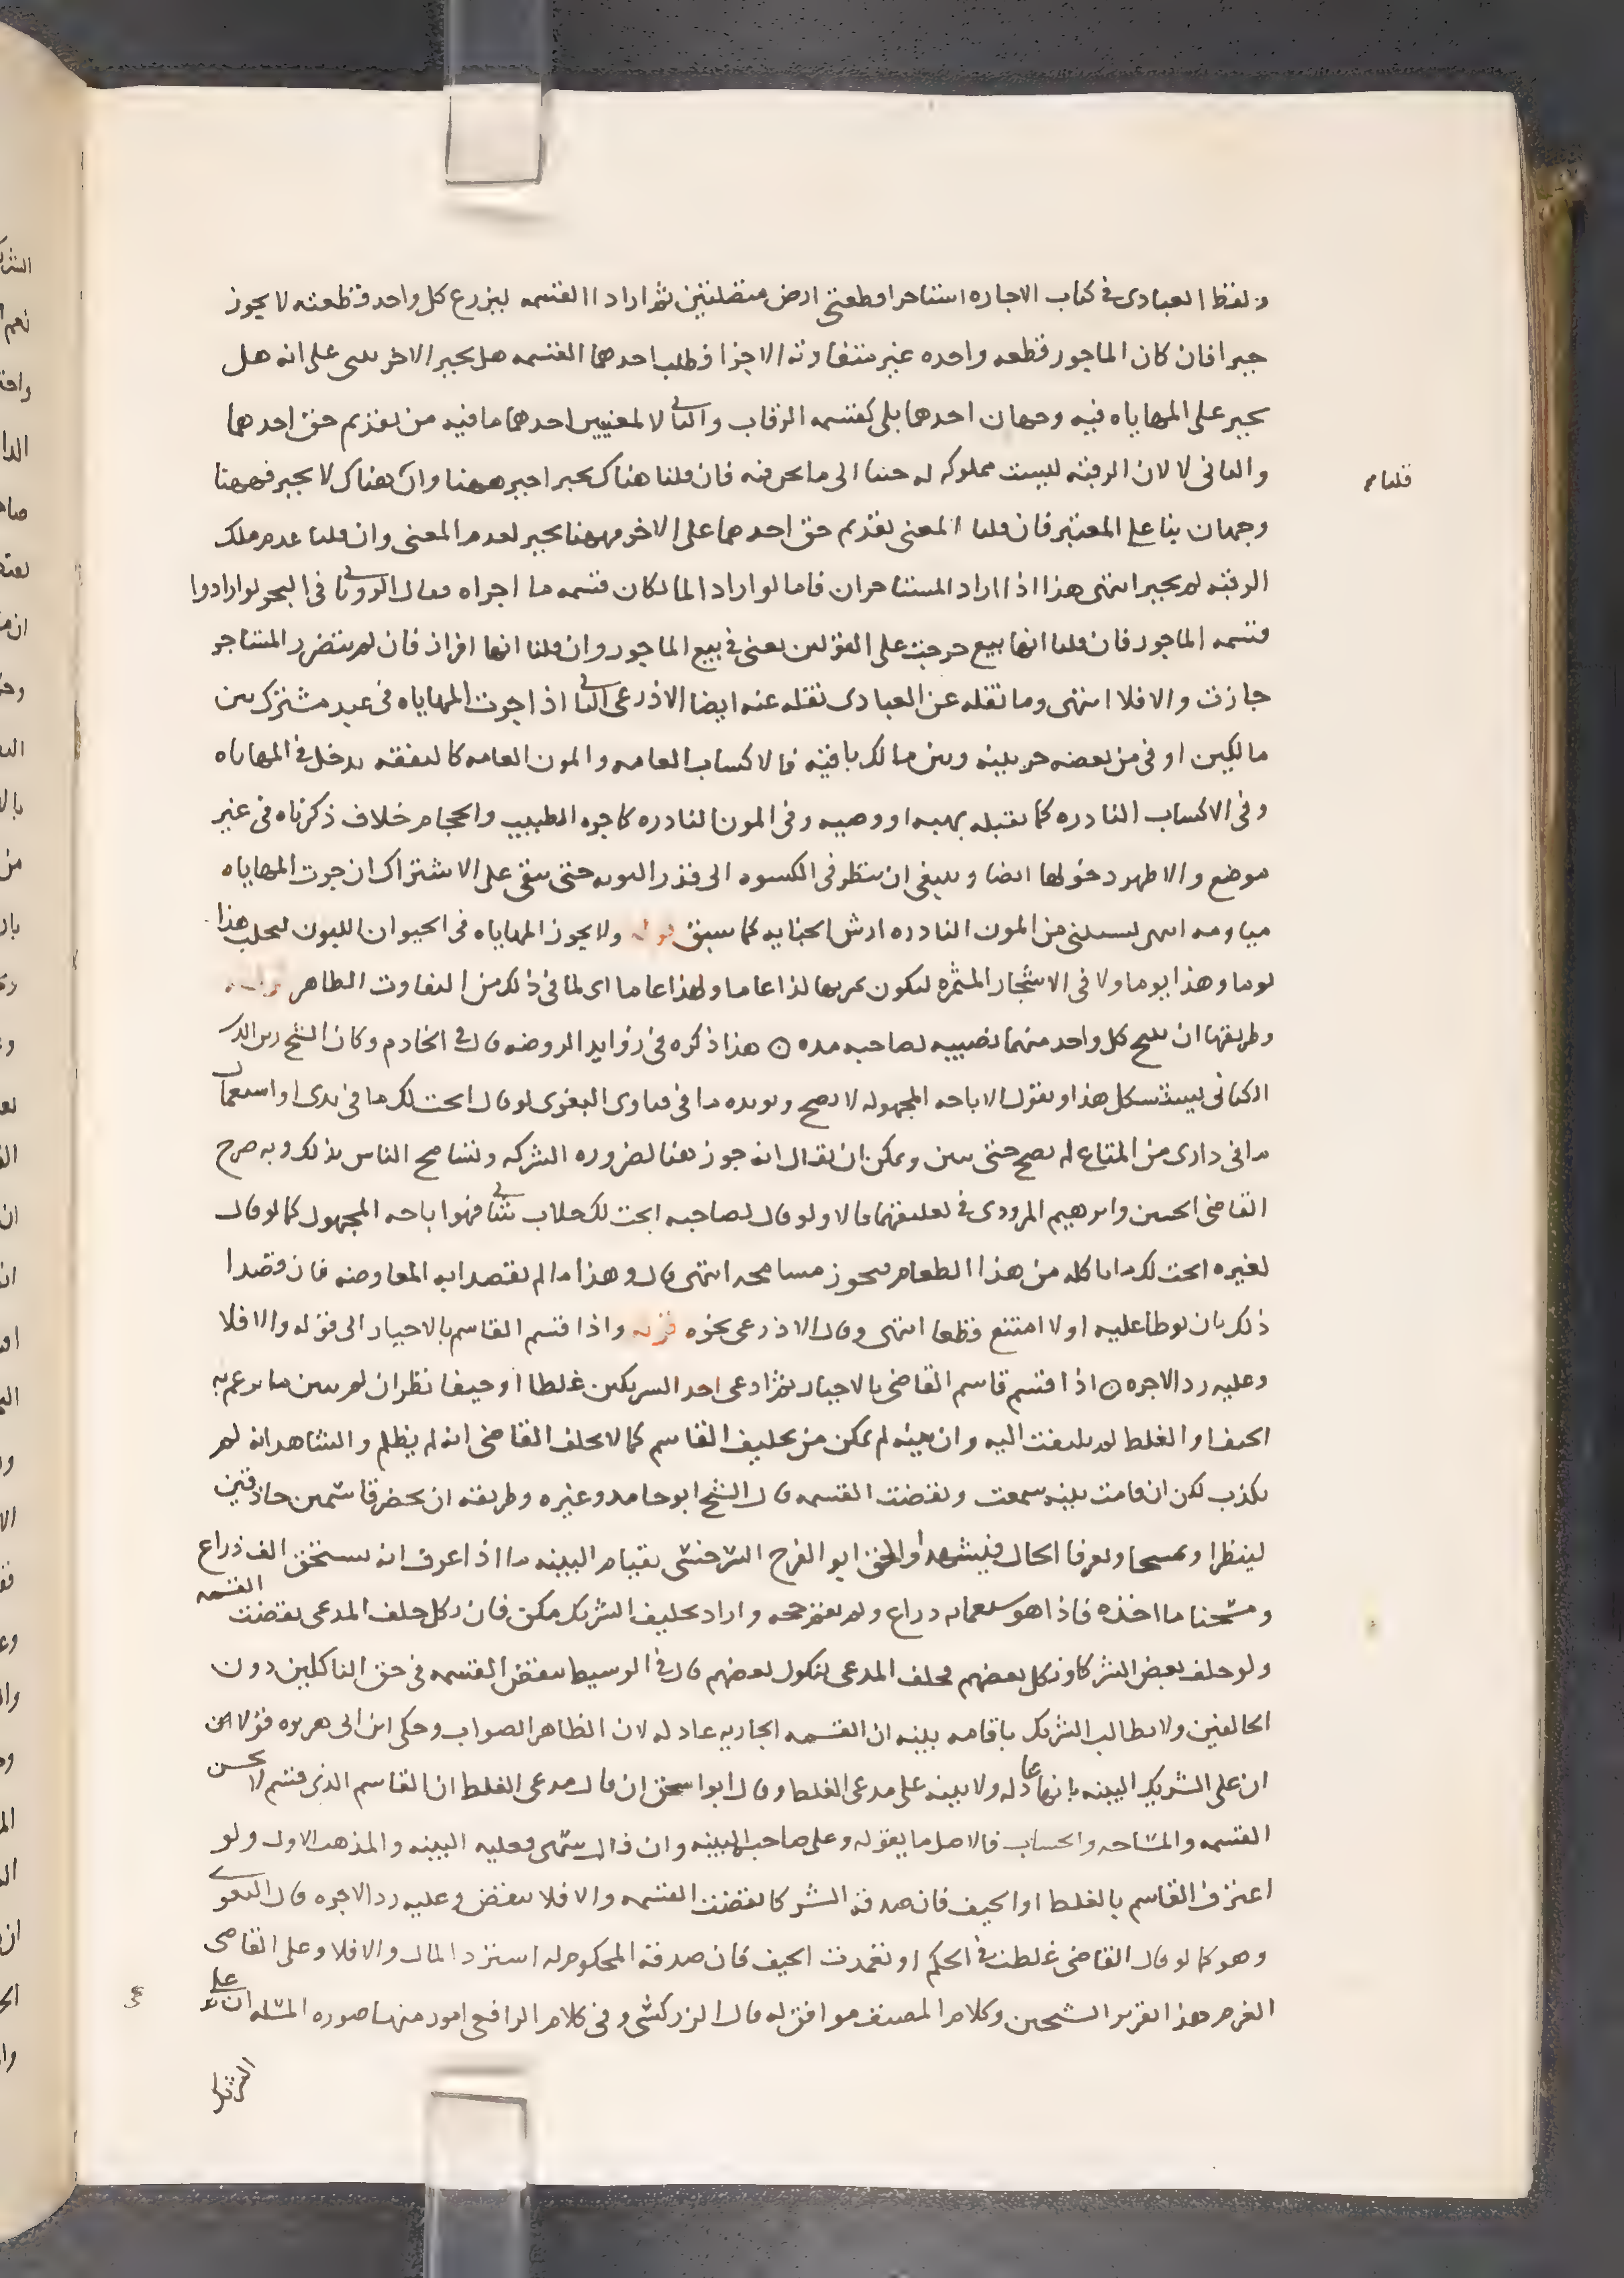 ولفظ العبادى فى كتاب الاجاره استاجرا قطعتى ارض متصلتين ثم ارادا القسمه ليزرع كل واحد قطعته لا يجوز
جبرا فان كان الماجور قطعه واحده غير متفاوته الاجزا فطلب احدهما القسمه هل يجبر الاخر يبنى على انه هل
يجبر على المهاياه فيه وجهان احدهما بلى كقسمه الرقاب والثانى لا لمعنيين احدهما ما فيه من تقديم حق احدهما
والثانى لا لان الرقبه ليست مملوكه له جينا الى ما نحن فيه فان قلنا هناك يجبر اجبر ههنا وان هناك لا يجبر فههنا
قلنا صح
وجهان بنا على المعنيين فان قلنا المعنى تقديم حق احدهما على الاخر فههنا يجبر لعدم المعنى وان قلنا عدم ملك
الرقبه لم يجبر انتهى هذا اذا اراد المستاجران فاما لو اراد المالكان قسمه ما اجراه فقال الرويانى فى البحر لو ارادوا
قسمه الماجور فان قلنا انها بيع خرجت على القولين يعنى فى بيع الماجور وان قلنا انها افراز فان لم يتضرر المستاجر
جازت والا فلا انتهى وما نقله عن العبادى نقله عنه ايضا الاذرعى الثانى اذا جرت المهاياه فى عبد مشترك بين
مالكين او فى من بعضه حر بينه وبين مالك باقيه فالاكساب العامه والمون العامه كالنفقه يدخل فى المهاياه
وفى الاكساب النادره كما يقبله بهبه او وصيه وفى المون النادره كاجره الطبيب والحجام خلاف ذكرناه فى غير
موضع والاظهر دخولها ايضا وينبغى ان ينظر فى الكسوه الى قدر النوبه حتى يبقى على الاشتراك ان جرت المهاياه
مياومه انتهى يستثنى من المون النادره ارش الجنايه كما سبق قوله ولا يجوز المهاياه فى الحيوان اللبون ليحلب هذا
يوما وهذا يوما ولا فى الاشجار المثمره ليكون ثمرتها لذا عاما ولهذا عاما اى لما فى ذلك من التفاوت الظاهر قوله
وطريقها ان يبيح كل واحد منهما نصيبه لصاحبه مده ن هذا ذكره فى زوايد الروضه قال فى الخادم وكان الشيخ زين الدين
الكتانى يستشكل هذا ويقول الاباحه المجهوله لا تصح ويويده ما فى فتاوى البغوى لو قال ابحت لك ما فى يدى او استعمال
ما فى دارى من المتاع لم يصح حتى يبين ويمكن ان يقال انه جوز هنا لضروره الشركه وتسامح الناس بذلك وبه صرح
القاضى الحسين وابرهيم المرودى فى تعليقهما قالا ولو قال لصاحبه ابحت لك حلاب شاتى فهو اباحه المجهول كما لو قال
لغيره ابحت لك ما تاكله من هذا الطعام فيجوز مسامحه انتهى قال وهذا ما لم يقصدا به المعاوضه فان قصدا
ذلك بان توطا عليه اولا امتنع قطعا انتهى وقال الاذرعى نحوه قوله واذا قسم القاسم بالاجبار الى قوله والا فلا
وعليه رد الاجره ن اذا قسم قاسم القاضى بالاجبار ثم ادعى احد الشريكين غلطا او حيفا نظر ان لم يبين ما يزعم به
الحيف او الغلط لم يلتفت اليه وان بينه لم يمكن من تحليف القاسم كما لا يحلف القاضى انه لم يظلم والشاهد انه لم
يكذب لكن ان قامت بينه سمعت ونقضت القسمه قال الشيخ ابو حامد وغيره وطريقه ان يحضر قاسمين حاذقين
لينظرا ويمسحا ويعرفا الحال فيشهدا والحق ابو الفرج السرخسى بقيام البينه ما اذا عرف انه يستحق الف ذراع
ومسحنا ما اخذه فاذا هو سبعمايه ذراع ولم يقم حجه واراد تحليف الشريك مكن فان نكل حلف المدعى ونقضت القسمه
ولو حلف بعض الشركا ونكل بعضهم فحلف المدعى لنكول بعضهم قال فى الوسيط ينقض القسمه فى حق الناكلين دون
الحالفين ولا يطالب الشريك باقامه بينه ان القسمه الجاريه عادله لان الظاهر الصواب وحكى ابن ابى هريره قولا اخر
ان على الشريك البينه بانها عادله ولا بينه على مدعى الغلط وقال ابو اسحق ان قال مدعى الغلط ان القاسم الذى قسم لا يحسن
القسمه والمساحه والحساب فالاصل ما يقوله وعلى صاحبه البينه وان قال سهى فعليه البينه والمذهب الاول ولو
اعترف القاسم بالغلط او الحيف فان صدقه الشركا نقضت القسمه والا فلا ينقض وعليه رد الاجره قال البغوى
وهو كما لو قال القاضى غلطت فى الحكم او تعمدت الحيف فان صدقه المحكوم له استرد المال والا فلا وعلى القاضى
الغرم هذا تقرير الشيخين وكلام المصنف موافق له قال الزركشى وفى كلام الرافعى امور منها صوره المسله ان على
الشريك